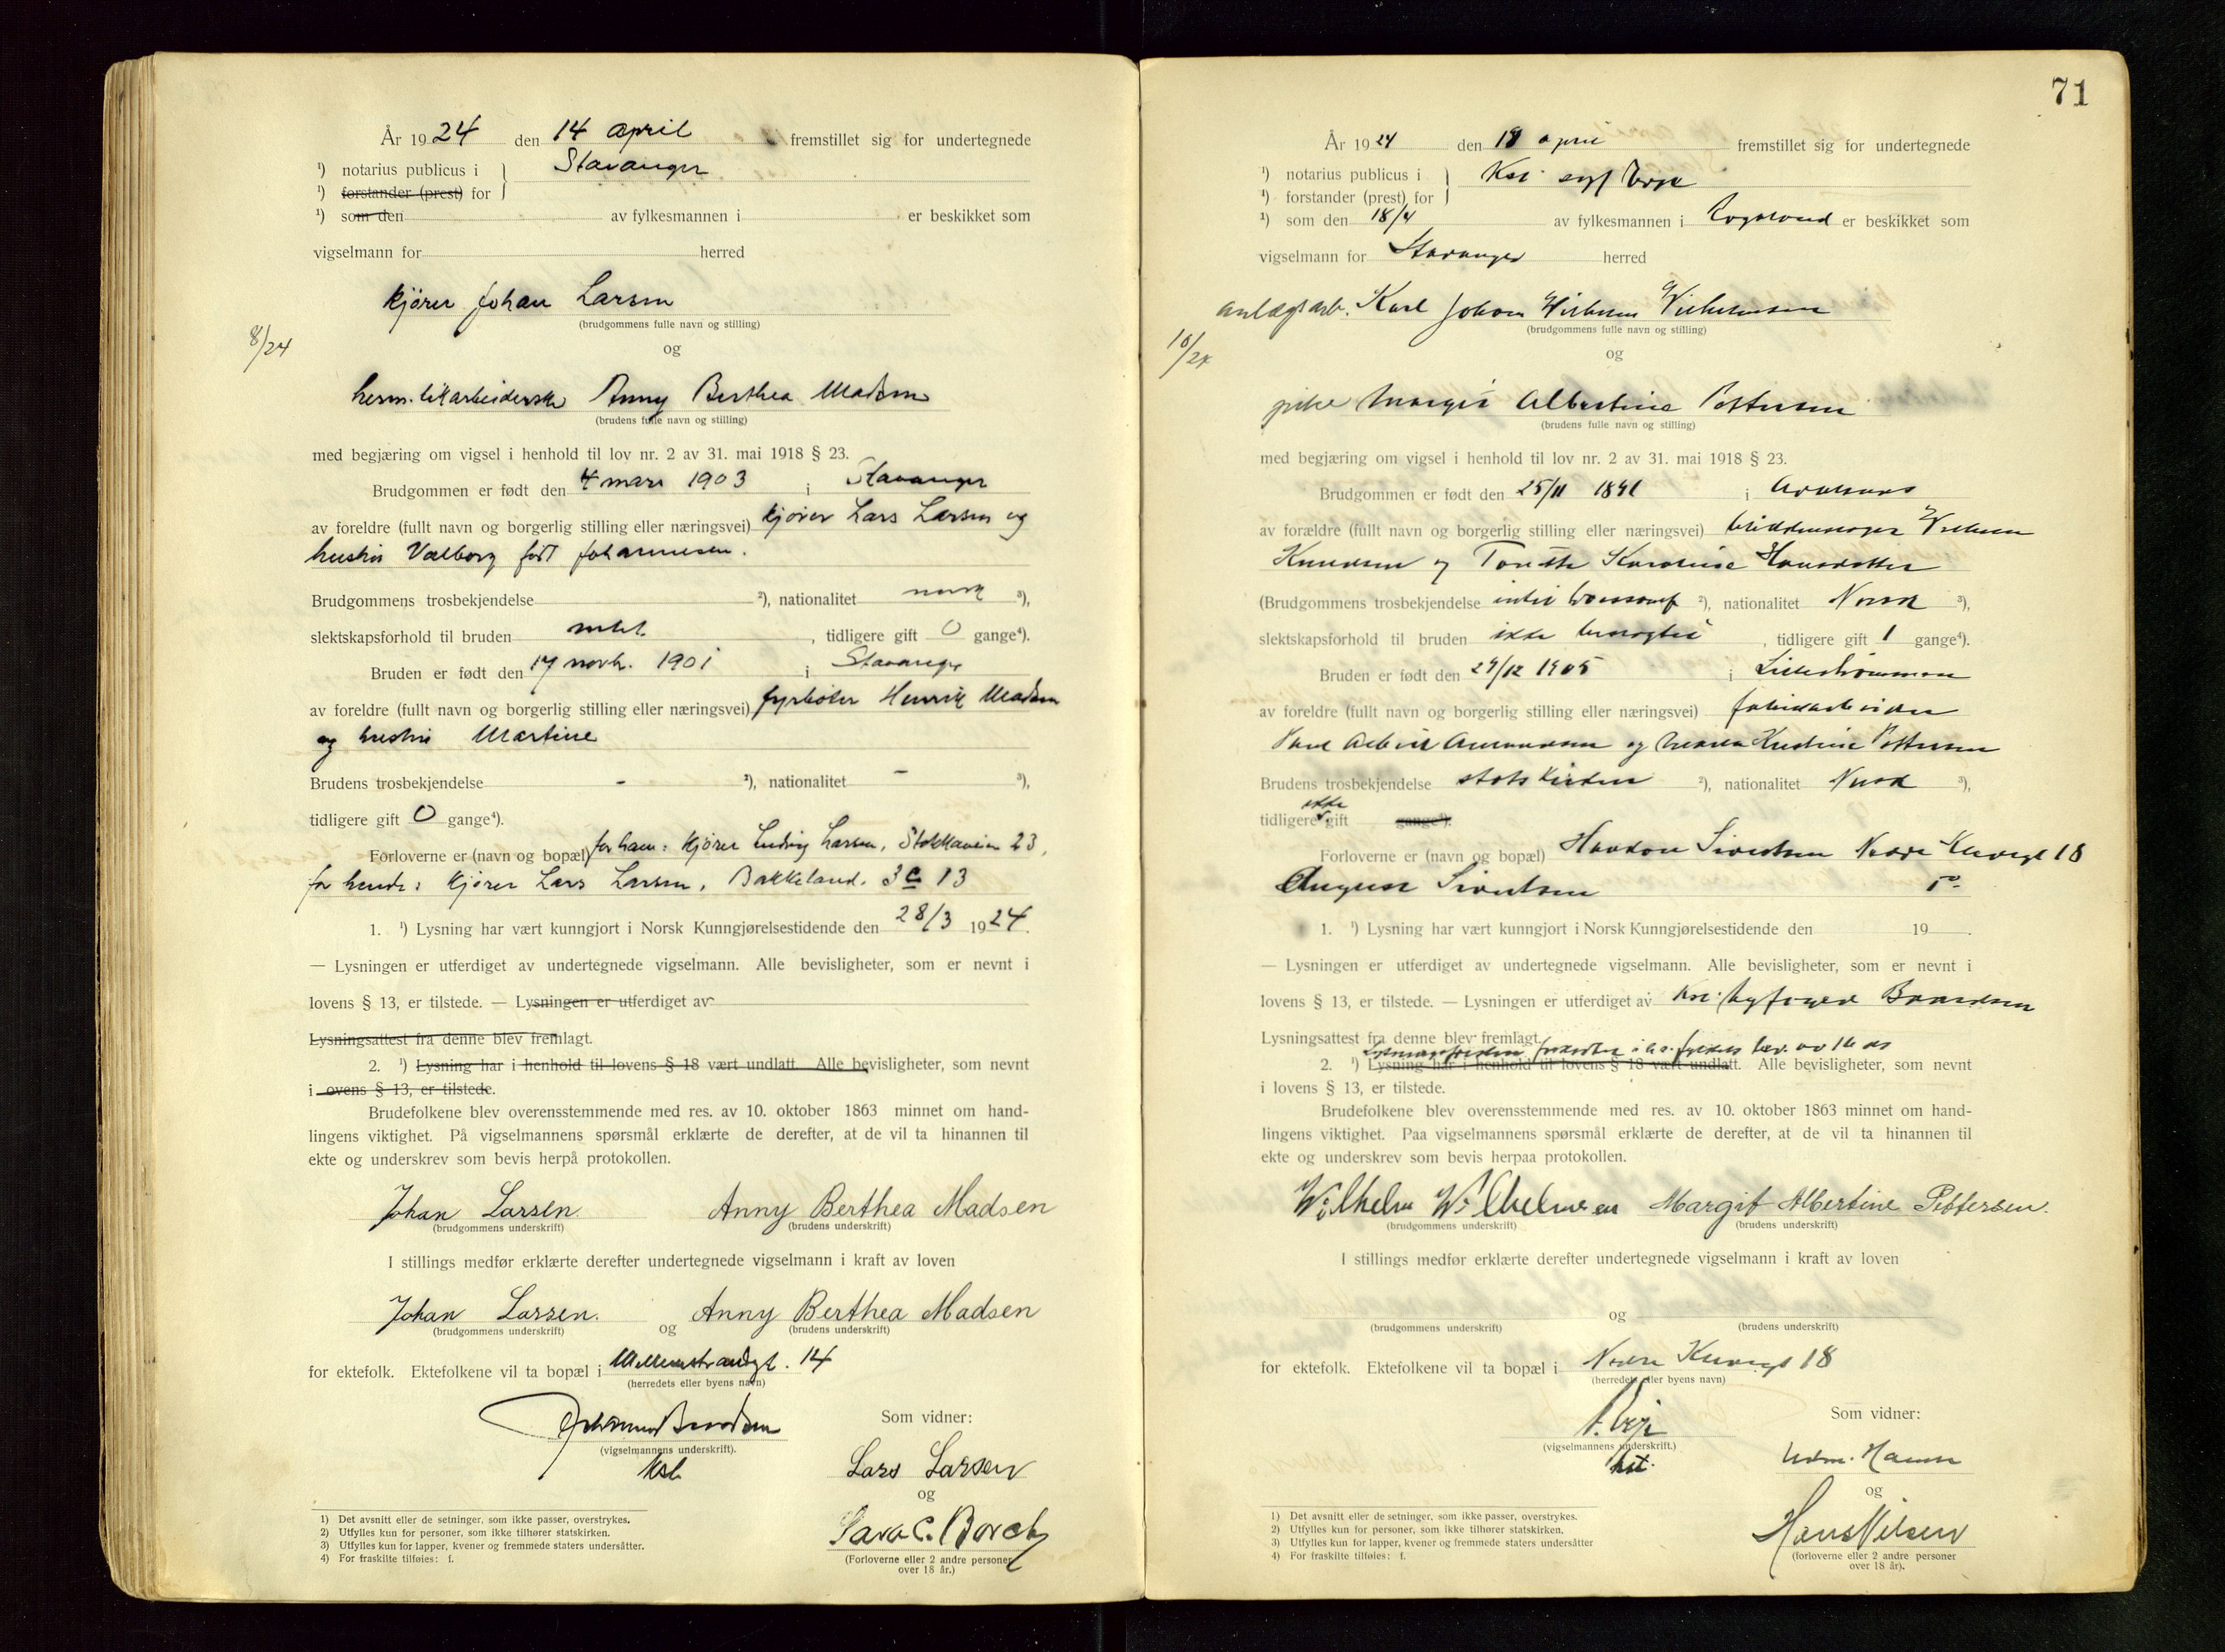 År 1924 den 14 april fremstillet sig for undertegnede
¹) notarius publicus i } Stavanger
¹) forstander (prest) for
¹) som den av fylkesmannen i er beskikket som
vigselmann for herred
kjører Johan Larsen
(brudgommens fulle navn og stilling)
8/24
og
herm.tikarbeiderske Anny Berthea Madsen
(brudens fulle navn og stilling)
med begjæring om vigsel i henhold til lov nr. 2 av 31. mai 1918 § 23.
Brudgommen er født den 4 mars 1903 i Stavanger
av foreldre (fullt navn og borgerlig stilling eller næringsvei) kjører Lars Larsen og
hustru Valborg født Johannesen.
Brudgommens trosbekjendelse ²), nationalitet norsk ³),
slektskapsforhold til bruden intet, tidligere gift 0 gange⁴).
Bruden er født den 17 novb. 1901 i Stavanger
av foreldre (fullt navn og borgerlig stilling eller næringsvei) fyrbøter Henrik Madsen
og hustru Martine
Brudens trosbekjendelse - ²), nationalitet - ³),
tidligere gift 0 gange⁴).
Forloverne er (navn og bopæl) for ham: kjører Ludvig Larsen, Stokkaveien 23,
for hende: kjører Lars Larsen, Bakkeland. 3c 13
1. ¹) Lysning har vært kunngjort i Norsk Kunngjørelsestidende den 28/3 1924.
— Lysningen er utferdiget av undertegnede vigselmann. Alle bevisligheter, som er nevnt i
lovens § 13, er tilstede. — Lysningen er utferdiget av
Lysningsattest fra denne blev fremlagt.
2. ¹) Lysning har i henhold til lovens § 18 vært undlatt. Alle bevisligheter, som nevnt
i lovens § 13, er tilstede.
Brudefolkene blev overensstemmende med res. av 10. oktober 1863 minnet om hand-
lingens viktighet. På vigselmannens spørsmål erklærte de derefter, at de vil ta hinannen til
ekte og underskrev som bevis herpå protokollen.
Johan Larsen. Anny Berthea Madsen
(brudgommens underskrift) (brudens underskrift)
I stillings medfør erklærte derefter undertegnede vigselmann i kraft av loven
Johan Larsen. og Anny Berthea Madsen
(brudgommens underskrift) (brudens underskrift)
for ektefolk. Ektefolkene vil ta bopæl i 14
(herredets eller byens navn)
(vigselmannens underskrift).
Som vidner:
Lars Larsen
og
Sara C. Borch
(Forloverne eller 2 andre personer
over 18 år.)
1) Det avsnitt eller de setninger, som ikke passer, overstrykes.
2) Utfylles kun for personer, som ikke tilhører statskirken.
3) Utfylles kun for lapper, kvener og fremmede staters undersåtter.
4) For fraskilte tilføies: f.
71
År 1924 den 18 april fremstillet sig for undertegnede
¹) notarius publicus i } Kst.
¹) forstander (prest) for
¹) som den 18/4 av fylkesmannen i Rogaland er beskikket som
vigselmann for Stavanger herred
anlægsarb. Karl Johan Wilhelm Wilhelmsen
(brudgommens fulle navn og stilling)
10/24
og
pike Margit Albertine Pettersen
(brudens fulle navn og stilling)
med begjæring om vigsel i henhold til lov nr. 2 av 31. mai 1918 § 23.
Brudgommen er født den 25/11 i
av forældre (fullt navn og borgerlig stilling eller næringsvei) Wilhelm
Knudsen og Karoline Hansdatter
(Brudgommens trosbekjendelse ²), nationalitet Norsk ³),
slektskapsforhold til bruden ikke beslægtet, tidligere gift 1 gange⁴).
Bruden er født den 29/12 1905 i Lillestrømmen
av foreldre (fullt navn og borgerlig stilling eller næringsvei) fabrikarbeider
og Kristine Pettersen
Brudens trosbekjendelse statskirken ²), nationalitet Norsk ³),
tidligere ikke gift gange⁴).
Forloverne er (navn og bopæl) Haakon Sivertsen Nedre 18
August Sivertsen
1. ¹) Lysning har vært kunngjort i Norsk Kunngjørelsestidende den 19 .
— Lysningen er utferdiget av undertegnede vigselmann. Alle bevisligheter, som er nevnt i
lovens § 13, er tilstede. — Lysningen er utferdiget av kst. byfoged
Lysningsattest fra denne blev fremlagt.
2. ¹) Lysning har i henhold til lovens § 18 vært undlatt. Alle bevisligheter, som nevnt
i lovens § 13, er tilstede.
Brudefolkene blev overensstemmende med res. av 10. oktober 1863 minnet om hand-
lingens viktighet. Paa vigselmannens spørsmål erklærte de derefter, at de vil ta hinannen til
ekte og underskrev som bevis herpaa protokollen.
Wilhelm Wilhelmsen Margit Albertine Pettersen.
(brudgommens underskrift) (brudens underskrift)
I stillings medfør erklærte derefter undertegnede vigselmann i kraft av loven
og
(brudgommens underskrift) (brudens underskrift)
for ektefolk. Ektefolkene vil ta bopæl i Nedre 18
(herredets eller byens navn)
(vigselmannens underskrift.)
kst.
Som vidner:
og
Hans Nilsen
(forloverne eller 2 andre personer
over 18 år).
1) Det avsnitt eller de setninger, som ikke passer, overstrykes.
2) Utfylles kun for personer, som ikke tilhører statskirken.
3) Utfylles kun for lapper, kvener og fremmede staters undersåtter
4) For fraskilte tilføies: f.